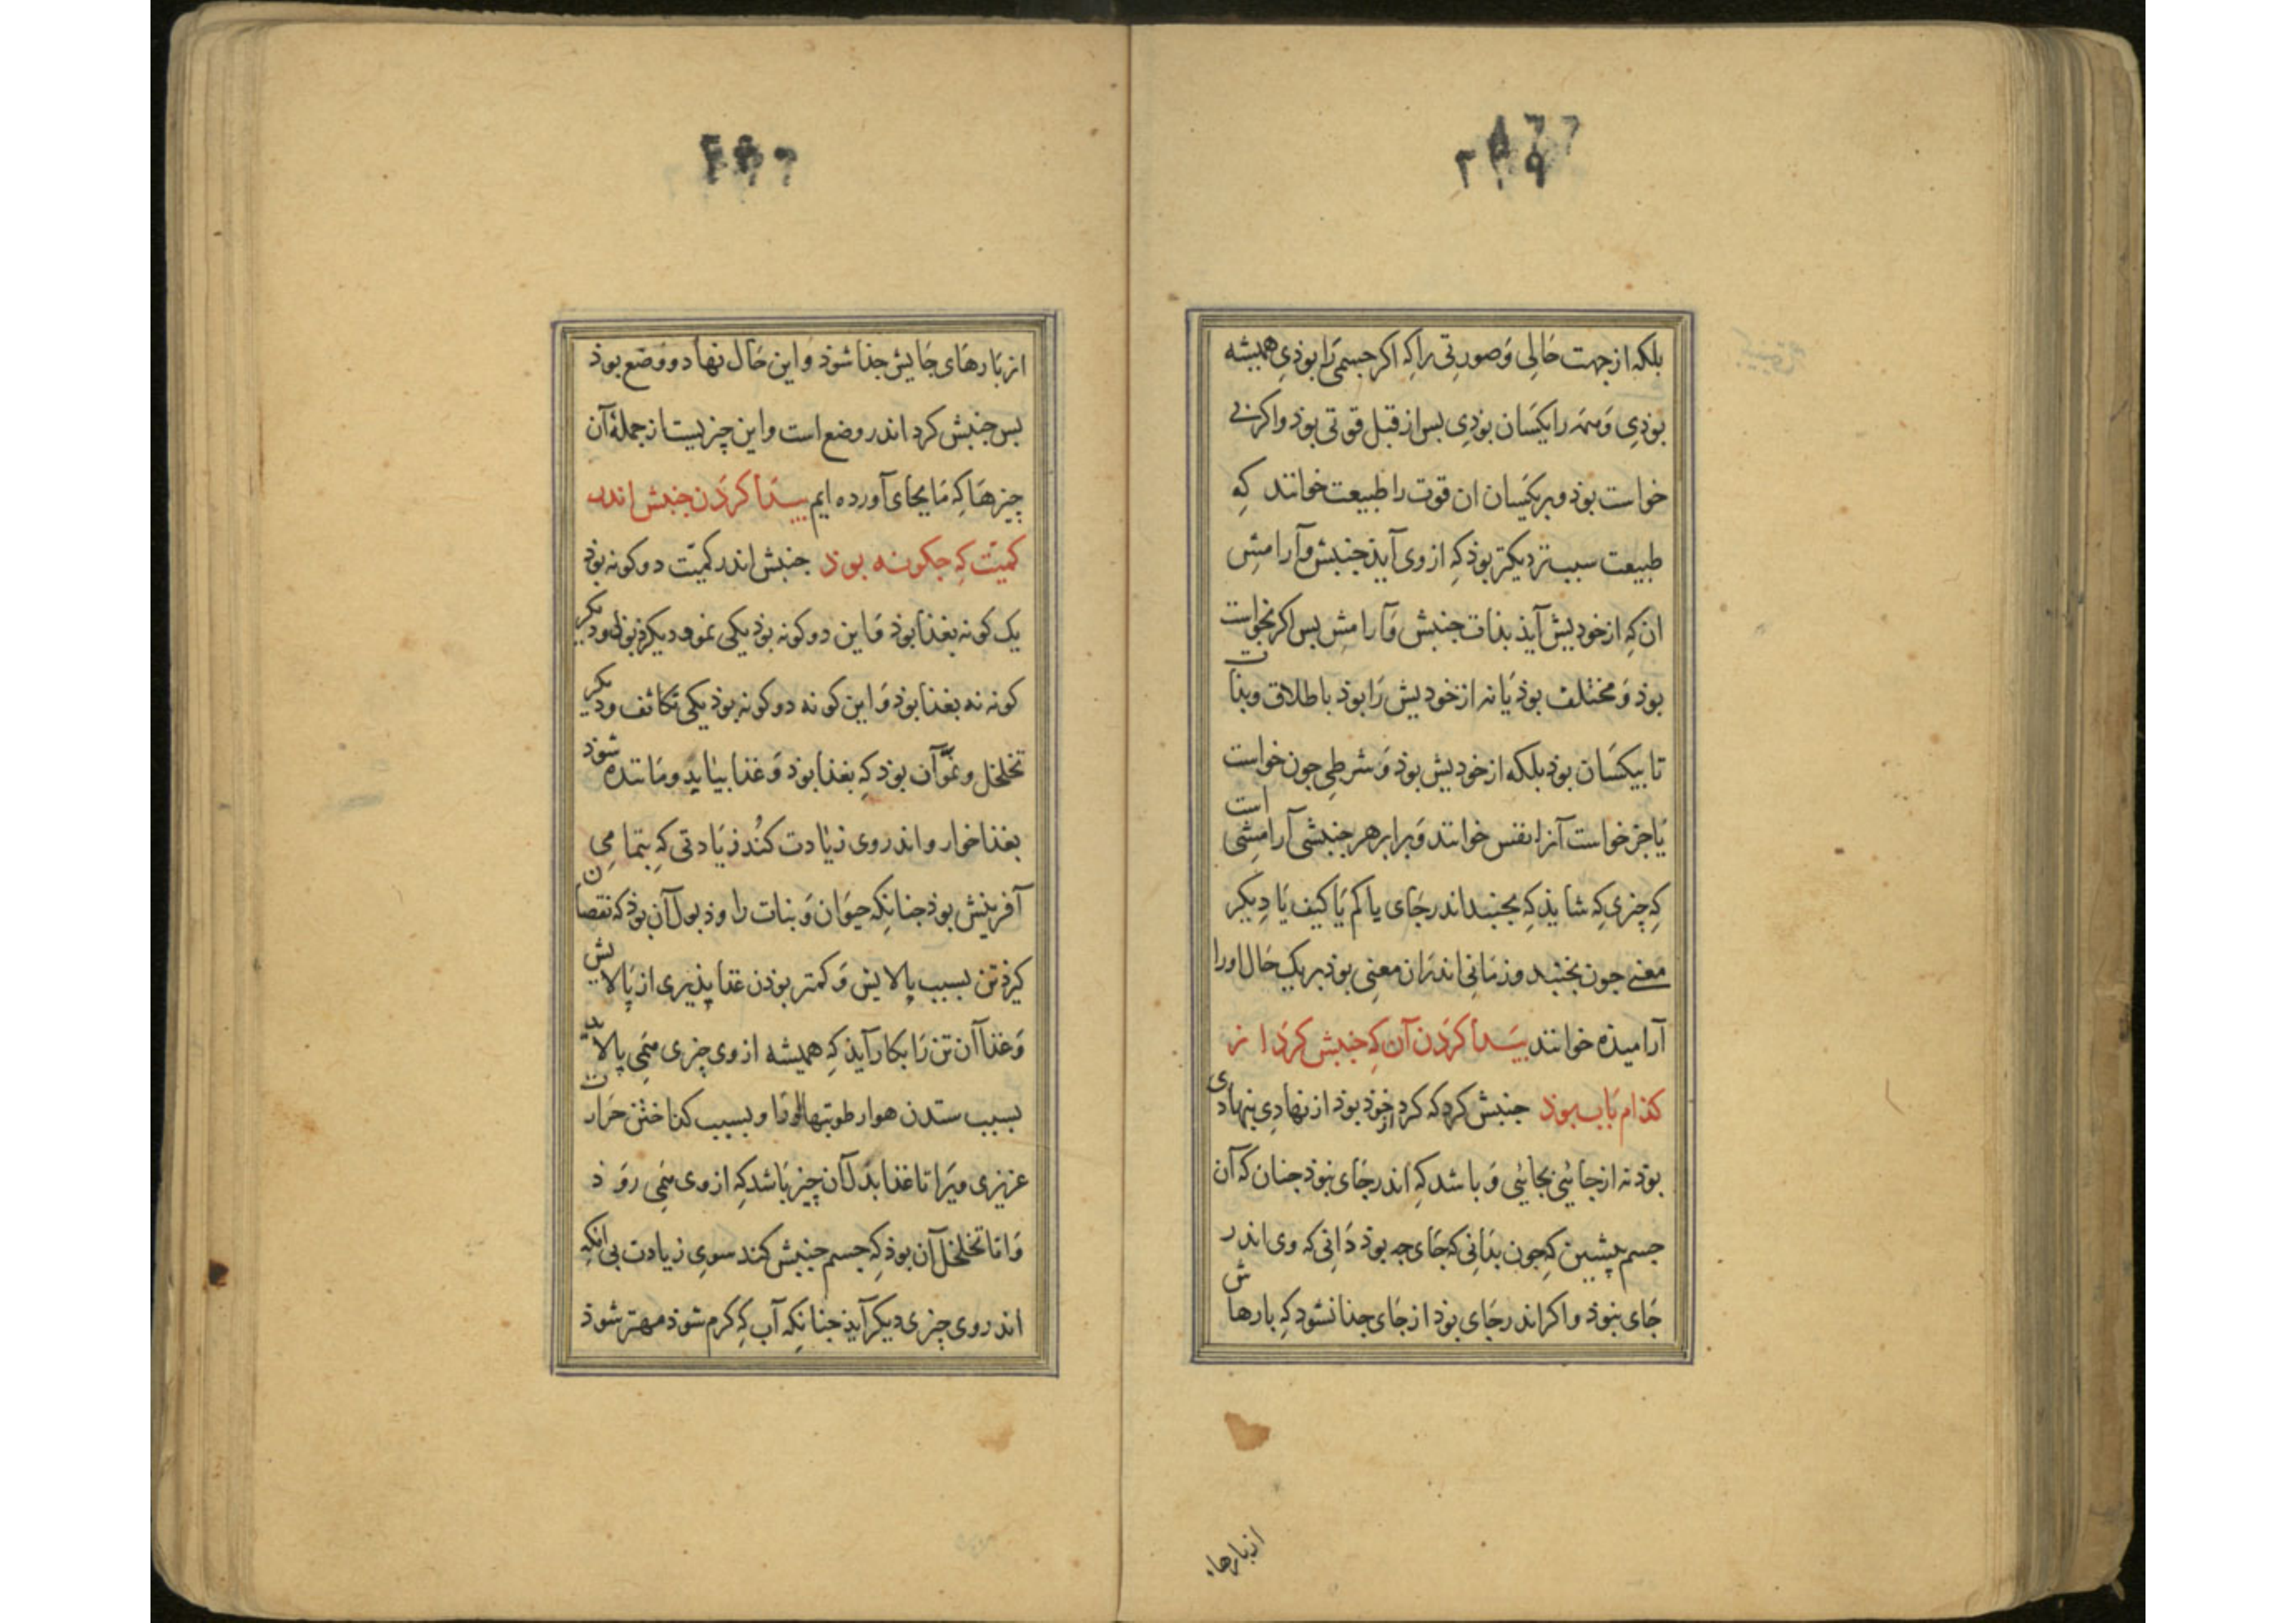 بلکه از جهت حَالِی وَ صورتی را کِه اکر جسمی رَا بوذیِ همیشه
بوذیِ وَ همَه را یکسَان بوذیِ بس از قبل قوتی بوذ و اکر بی
خواست بوذ و بر یکسَان ان قوت را طبیعت خوانند کِه
طبیعت سبب نزدیکتر بوذ کِه از وی آیذ جنبش و آرامِش
ان کِه از خودیش آیذ بذات جنبش وَ آرامِش بس اکر بخواست
بوذ وَ مختلف بوذ یَا نه از خودیش رَا بوذ باطلاق و بذات
تا بیکسَان بوذ بلکه از خودیش بوذ وَ شرطیِ جون خواست
یَا جز خواست آنرا نفس خوانند وَ برابر هر جنبشی آرامِشی است
کِه چیزی کِه شایذ کِه بجنبد اندر جَای یا کم یَا کیف یَا دِیکر
معنی جون بجنبد و زمَانی اندرَان معنیِ بوذ بر یک حَال او را
آرامیذه خوانند بیَدا کرَدن آن کِه جنبش کرَد از
کذام بَاب بوذ جنبش کرد که کرد خوذ بوذ از نهادیِ بنهادی
بوذ نه از جائی بجائی وَ باشد کِه اندر جَای نبوذ جنان کَه آن
جسم پیشین کِه جون بذَانی کِه جَای جه بوذ دَانی که وی اندر
جَای نبوذ و اکر اندر جَای بوذ از جَای جذا نشود کِه بارهاش
از بارها
از بَارهَای جَایش جذا شوذ وَ این حَال نهاد و وضع بوذ
بس جنبش کرد اندر وضع است و این چیزیست از جملهٔ آن
چیزهَا کِه مَا بجای آورده ایم بیدَا کرَدن جنبش اندر
کمیّت کِه جکونه بوذ جنبش اندر کمیّت دو کونه بوذ
یک کونه بغذا بوذ وَ این دو کونه بوذ یکی نمو و دیکر ذبول و دیکر
کونه نه بغذا بوذ وَ این کونه دو کونه بوذ یکی تکاثف و دیکر
تخلخل و نموّ آن بوذ کِه بغذا بوذ وَ غذا بیایدِ و مَانندهٔ شوذ
بغذا خوار و اندر وی زیَادت کنُد زیَادتی کِه بتمامیِ
آفرینش بوذ جنانکه حیوَان وَ نبات را و ذبول آن بوذ که نقصان
کیرذ تن بسبب پالایش وَ کمتر بوذن غذا پذیری از پَالایش
وَ غذا آن تن رَا بکار آیذ کِه همیشه از وی چیزی همَی پالاید
بسبب ستدن هوا رطوبتها او رَا و بسبب کذاختن حَرارت
عزیزی ویَرا تا غذا بدَل آن چیز بَاشد کِه از وی همَی روَذ
وَ امّا تخلخل آن بوذ کِه جسم جنبش کند سویِ زیادت بی انکه
اندر وی چیزی دیکر آیذ جنانکه آب کِه کرم شوذ مهتر شوذ